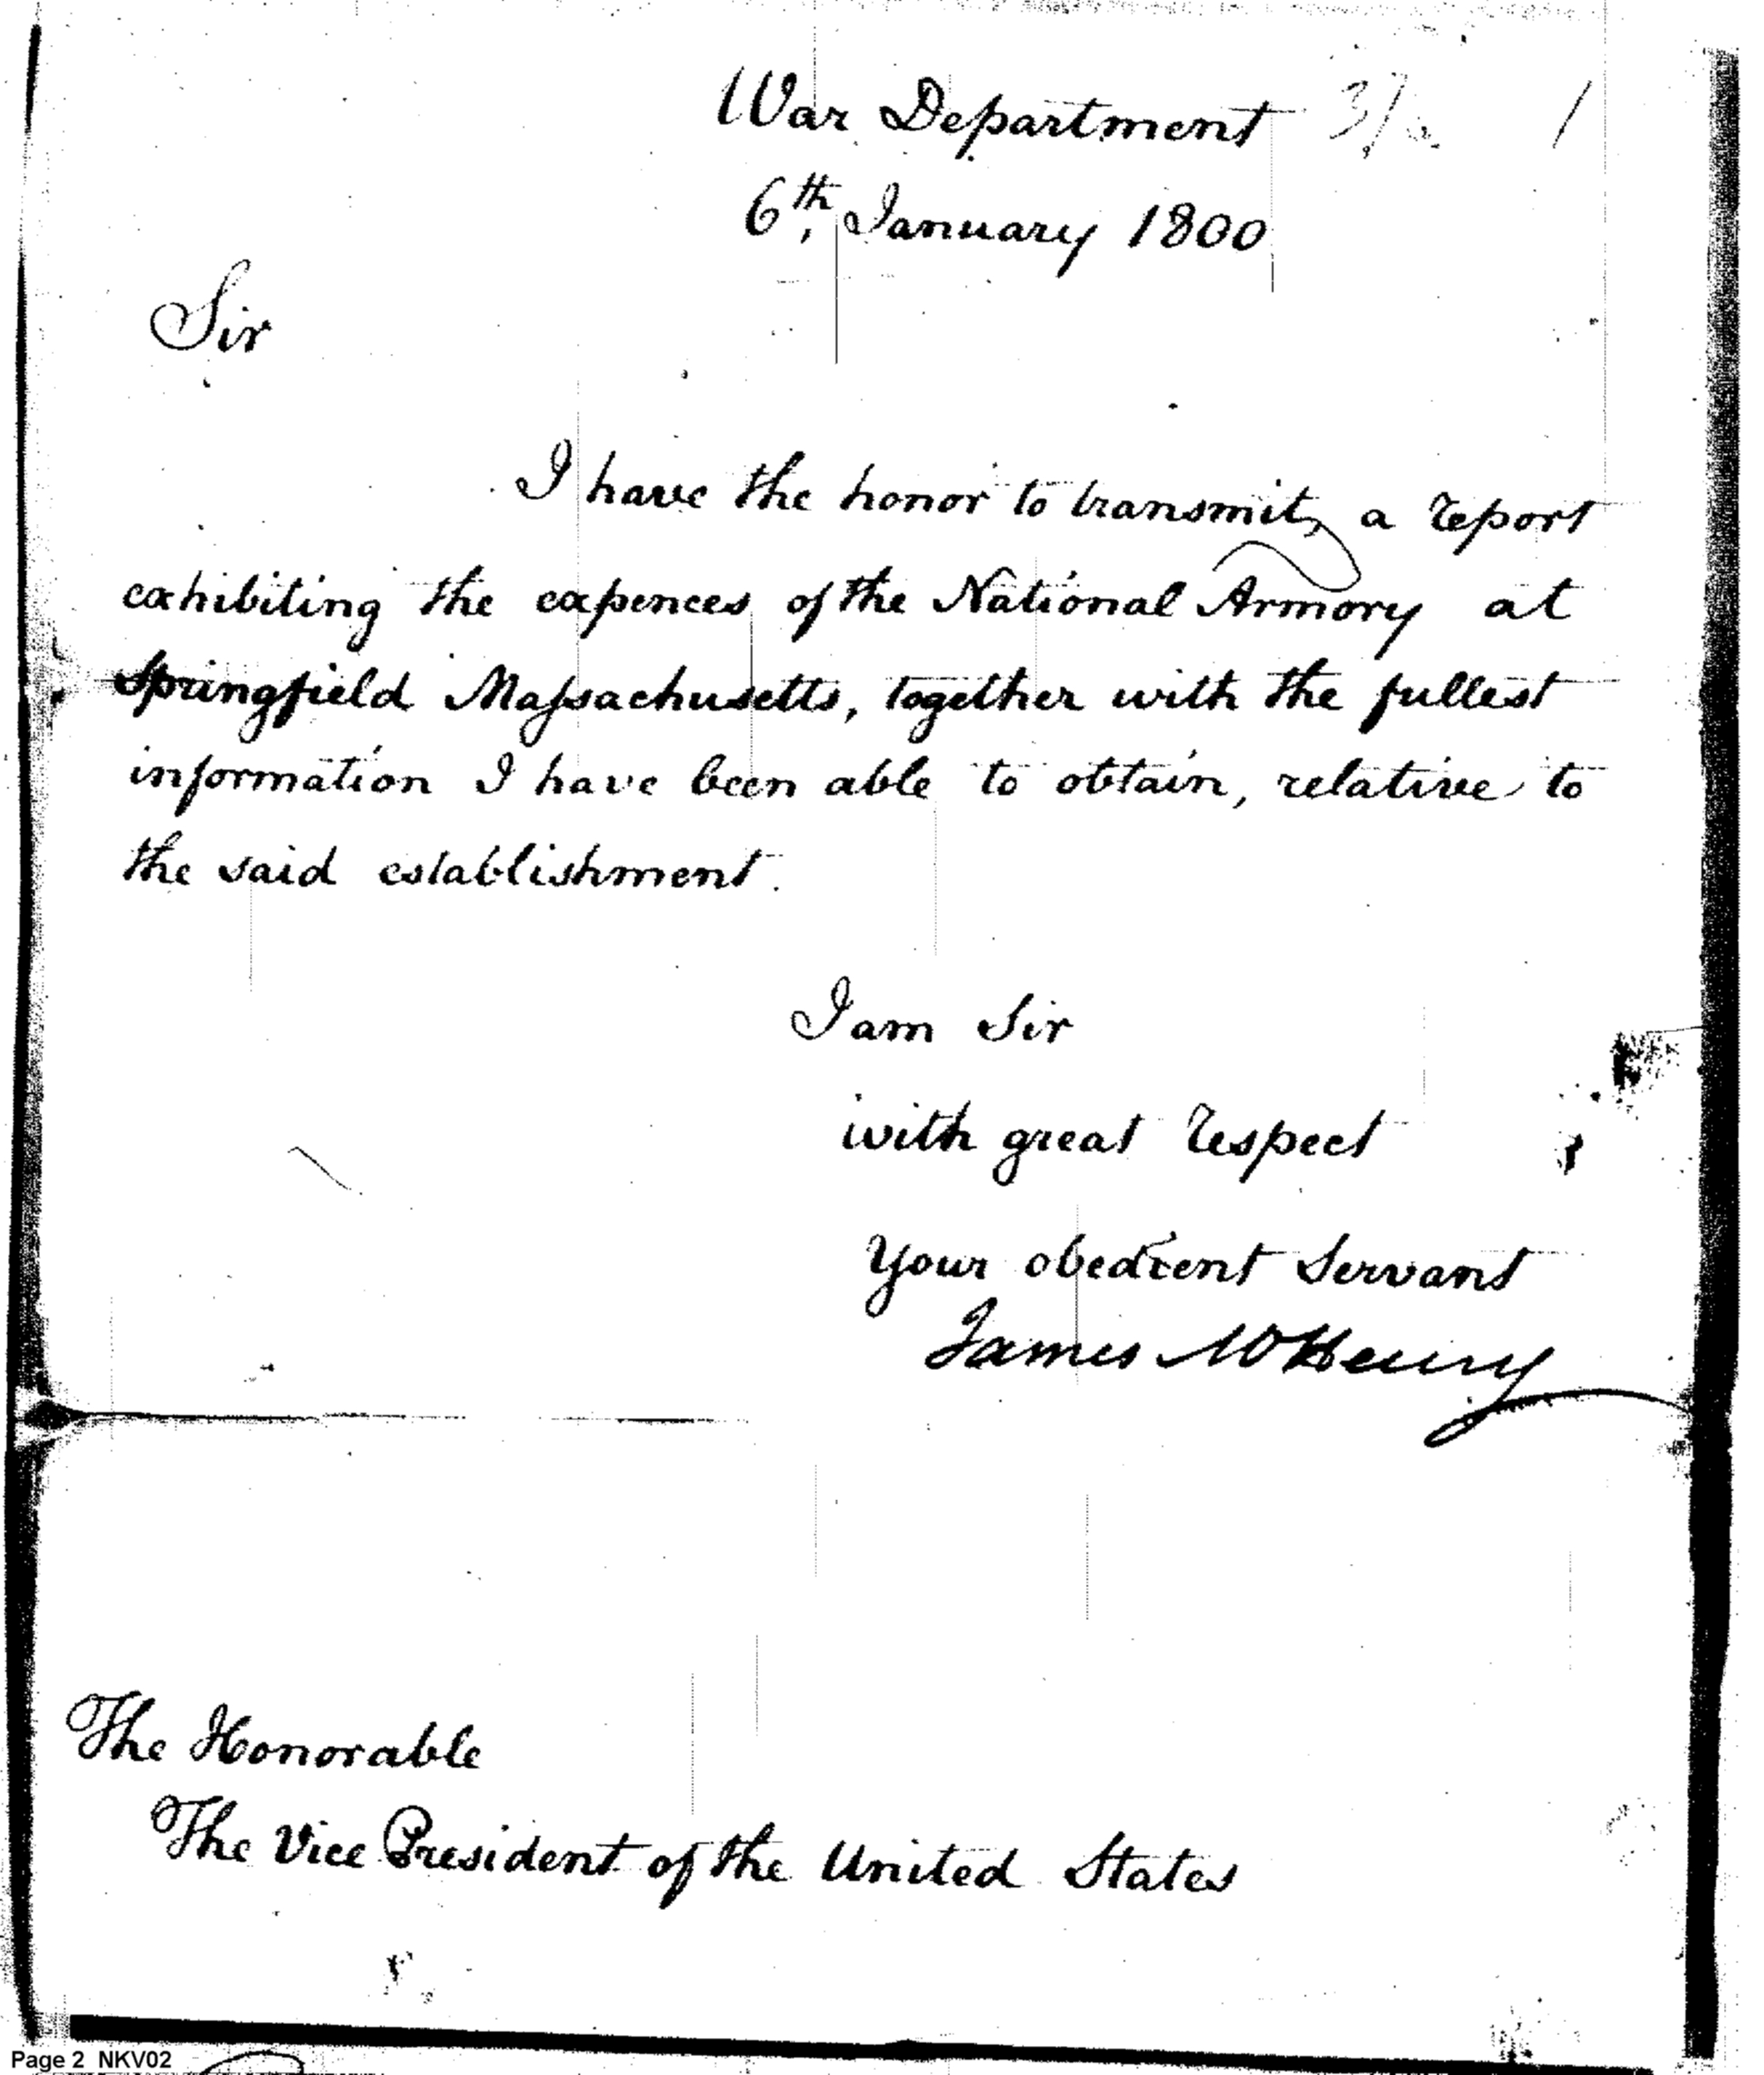 War Department
6th, January 1800
Sir
I have the honor to transmit, a report
exhibiting the expences of the National Armory at
Springfield Maſsachusetts, together with the fullest
information I have been able to obtain, relative to
the said establishment.
I am Sir
with great respect
your obedient Servant
James McHenry
The Honorable
The Vice President of the United States
Page 2 NKV02